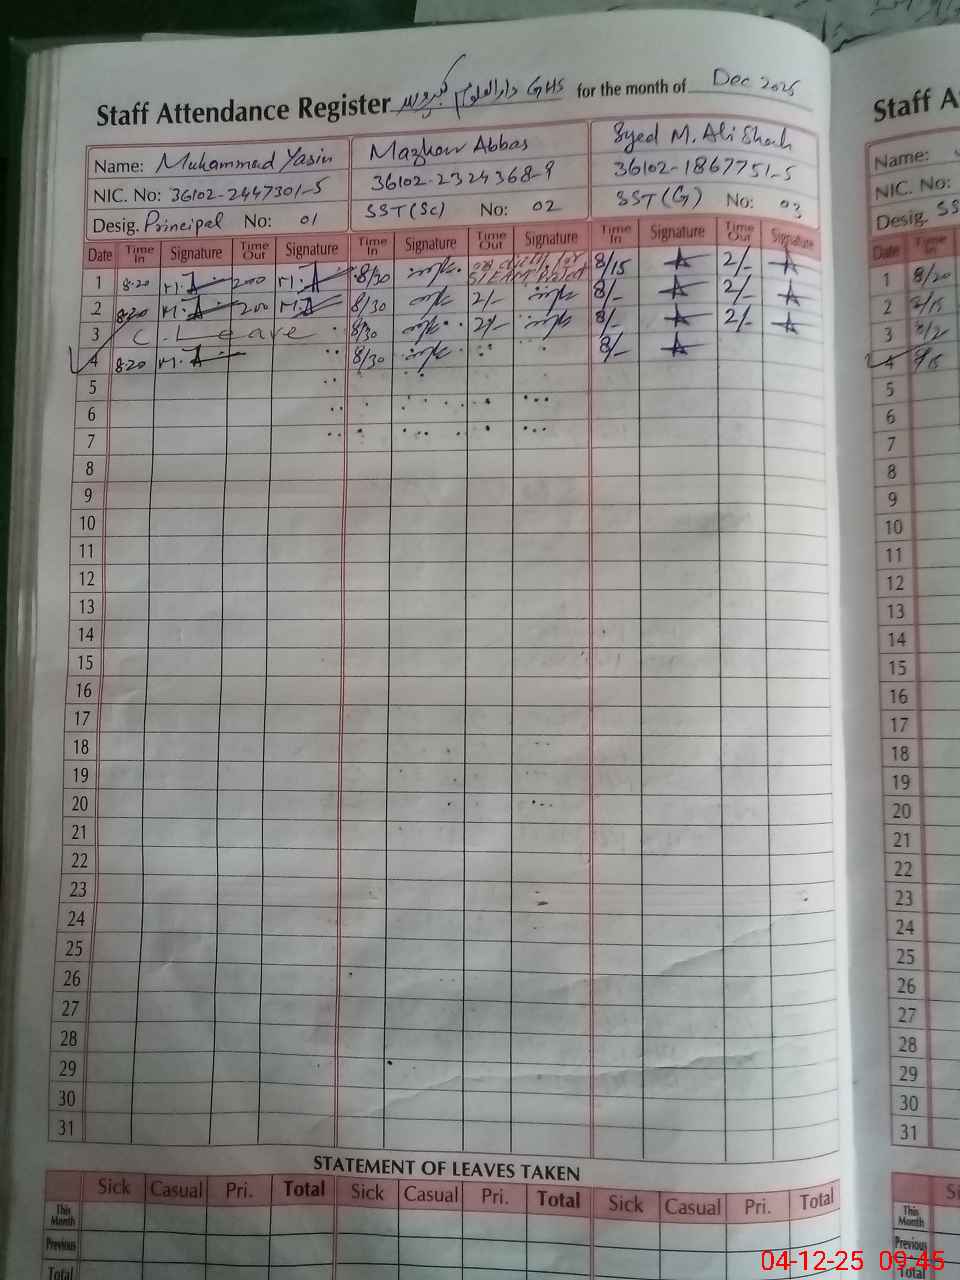 Staff Attendance Register دارالعلوم GHS for the month of Dec 2025
Name: Muhammad Yasin Mazhar Abbas Syed M. Ali Shah
NIC. No: 36102-2447301-5 36102-2324368-9 36102-1867751-5
Desig. Principal No: 01 SST (Sc) No: 02 SST (G) No: 03
Date Time In Signature Time Out Signature Time In Signature Time Out Signature Time In Signature Time Out Signature
1 8:20 200 8/30 on duty for 8/15 2/-
2 8:20 200 8/30 2/- 8/- 2/-
3 C. Leave 8/30 2/- 8/- 2/-
4 8:20 8/30 8/-
5
6
7
8
9
10
11
12
13
14
15
16
17
18
19
20
21
22
23
24
25
26
27
28
29
30
31
STATEMENT OF LEAVES TAKEN
Sick Casual Pri. Total Sick Casual Pri. Total Sick Casual Pri. Total
This Month
Previous
Total
Staff A
Name:
NIC. No:
Desig. SS
Date Time In
1 8/20
2
3
4
5
6
7
8
9
10
11
12
13
14
15
16
17
18
19
20
21
22
23
24
25
26
27
28
29
30
31
This Month
Previous
Total
04-12-25 09:45